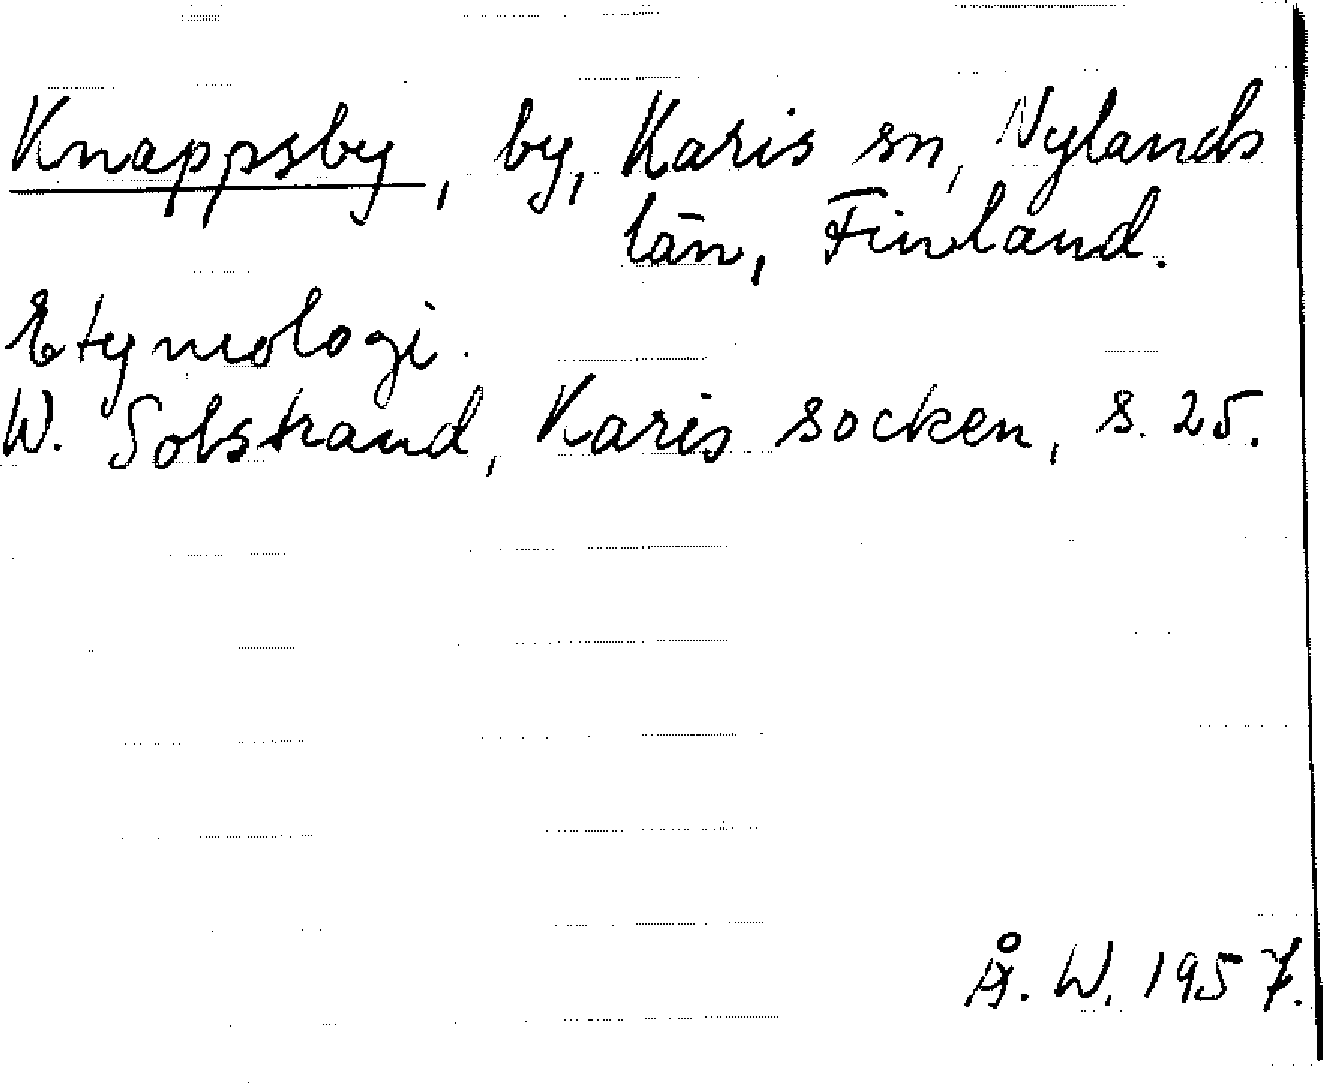 Knappsby, by, Karis sn, Nylands
län, Finland.
Etymologi.
W. Solstrand, Karis socken, s. 25.
Å. W. 1957.